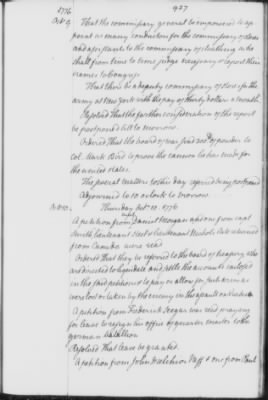 1776 927
Oct. 9 That the commissary general be empowered to ap-
point as many conductors for the commissary of stores
and assistants to the commissary of cloathing as he
shall from time to time judge necessary & report their
names to Congress
That there be a deputy commissary of stores for the
army at New York with the pay of thirty dollars a month.
Resolved that the farther consideration of the report
be postponed till to morrow.
Ordered That the board of war send 200 lb of powder to
col. Mark Bird to prove the cannon he has made for
the united states.
The several matters to this day referred being postponed
Adjourned to 10 o'clock to morrow.
Oct. 10. Thursday Oct. 10. 1776
A petition from Daniel Morgan and one from capt
Smith, lieutenant Heth & lieutenant Nichols late returned
from Canada were read
Ordered That they be referred to the board of treasury, who
are directed to liquidate and settle the accounts enclosed
in the said petitions & to pay or allow for such arms as
were lost or taken by the enemy in the assault on Quebec
A petition from Frederick was read praying
for leave to resign his office of quarter master to the
german battalion
Resolved that leave be granted.
A petition from John Melchior Neff & one from Carel